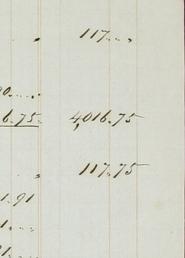 117 . . .
00 . . .
6.75 4,016.75
117.75
1.91
1 . . .
21 . . .